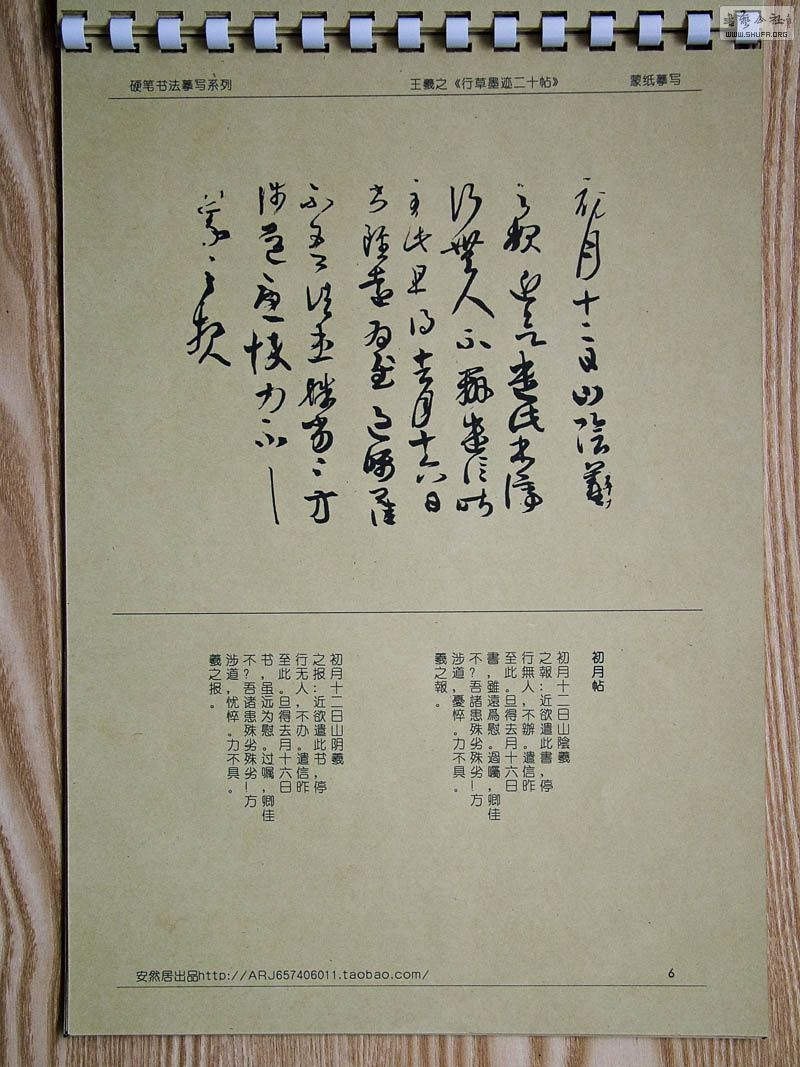 书艺公社
WWW.SHUFA.ORG
硬笔书法摹写系列
王羲之《行草墨迹二十帖》
蒙纸摹写
初月十二日山陰羲
之報近欲遣此書停
行無人不辦遣信昨
至此旦得去月十六日
書雖遠為慰過囑卿佳
不吾諸患殊劣殊劣方
涉道憂悴力不具
羲之報
初月帖
初月十二日山陰羲
之報：近欲遣此書，停
行無人，不辦。遣信昨
至此。旦得去月十六日
書，雖遠爲慰。過囑，卿佳
不？吾諸患殊劣殊劣！方
涉道，憂悴。力不具。
羲之報。
初月十二日山阴羲
之报：近欲遣此书，停
行无人，不办。遣信昨
至此。旦得去月十六日
书，虽远为慰。过嘱，卿佳
不？吾诸患殊劣殊劣！方
涉道，忧悴。力不具。
羲之报。
安然居出品http://ARJ657406011.taobao.com/
6